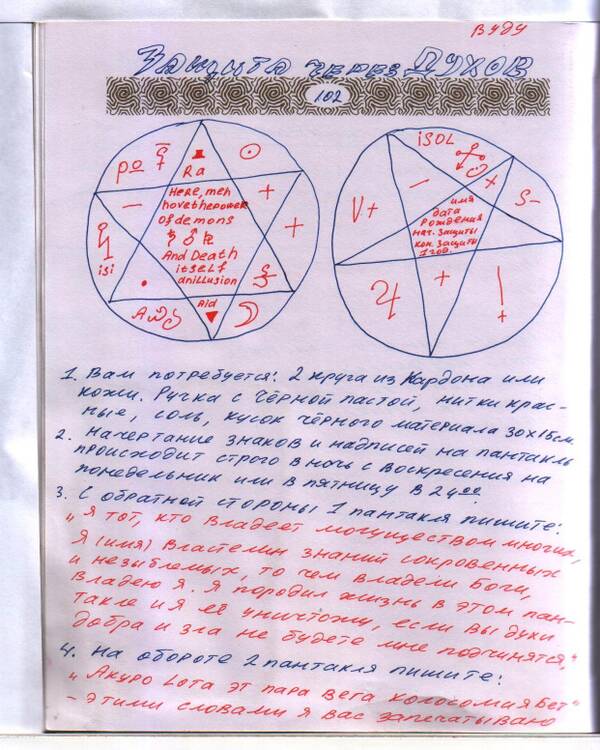 Вуду
Защита через Духов
102
Ra
Here, meh
hovethepower
of demons
And Death
itself
anillusion
Aid
isi
iSOL
V+
S-
имя
дата
рождения
нач. защиты
кон. защиты
1 год.
1. Вам потребуется: 2 круга из Кардона или
кожи. Ручка с чёрной пастой, нитки крас-
ные, соль, кусок чёрного материала 30х15см
2. Начертание знаков и надписей на пантакль
происходит строго в ночь с Воскресения на
понедельник или в пятницу в 24 00
3. С обратной стороны 1 пантакля пишите:
„Я тот, кто владеет могуществом многих,
Я (имя) Властелин знаний сокровенных
и незыблемых, то чем владели Боги,
владею Я. Я породил жизнь в этом пан-
такле и я её уничтожу, если вы духи
добра и зла не будете мне подчинятся,"
4. на обороте 2 пантакля пишите:
„Акуро Lота эт пара вега колосомия Бет"
- этими словами я вас запечатываю